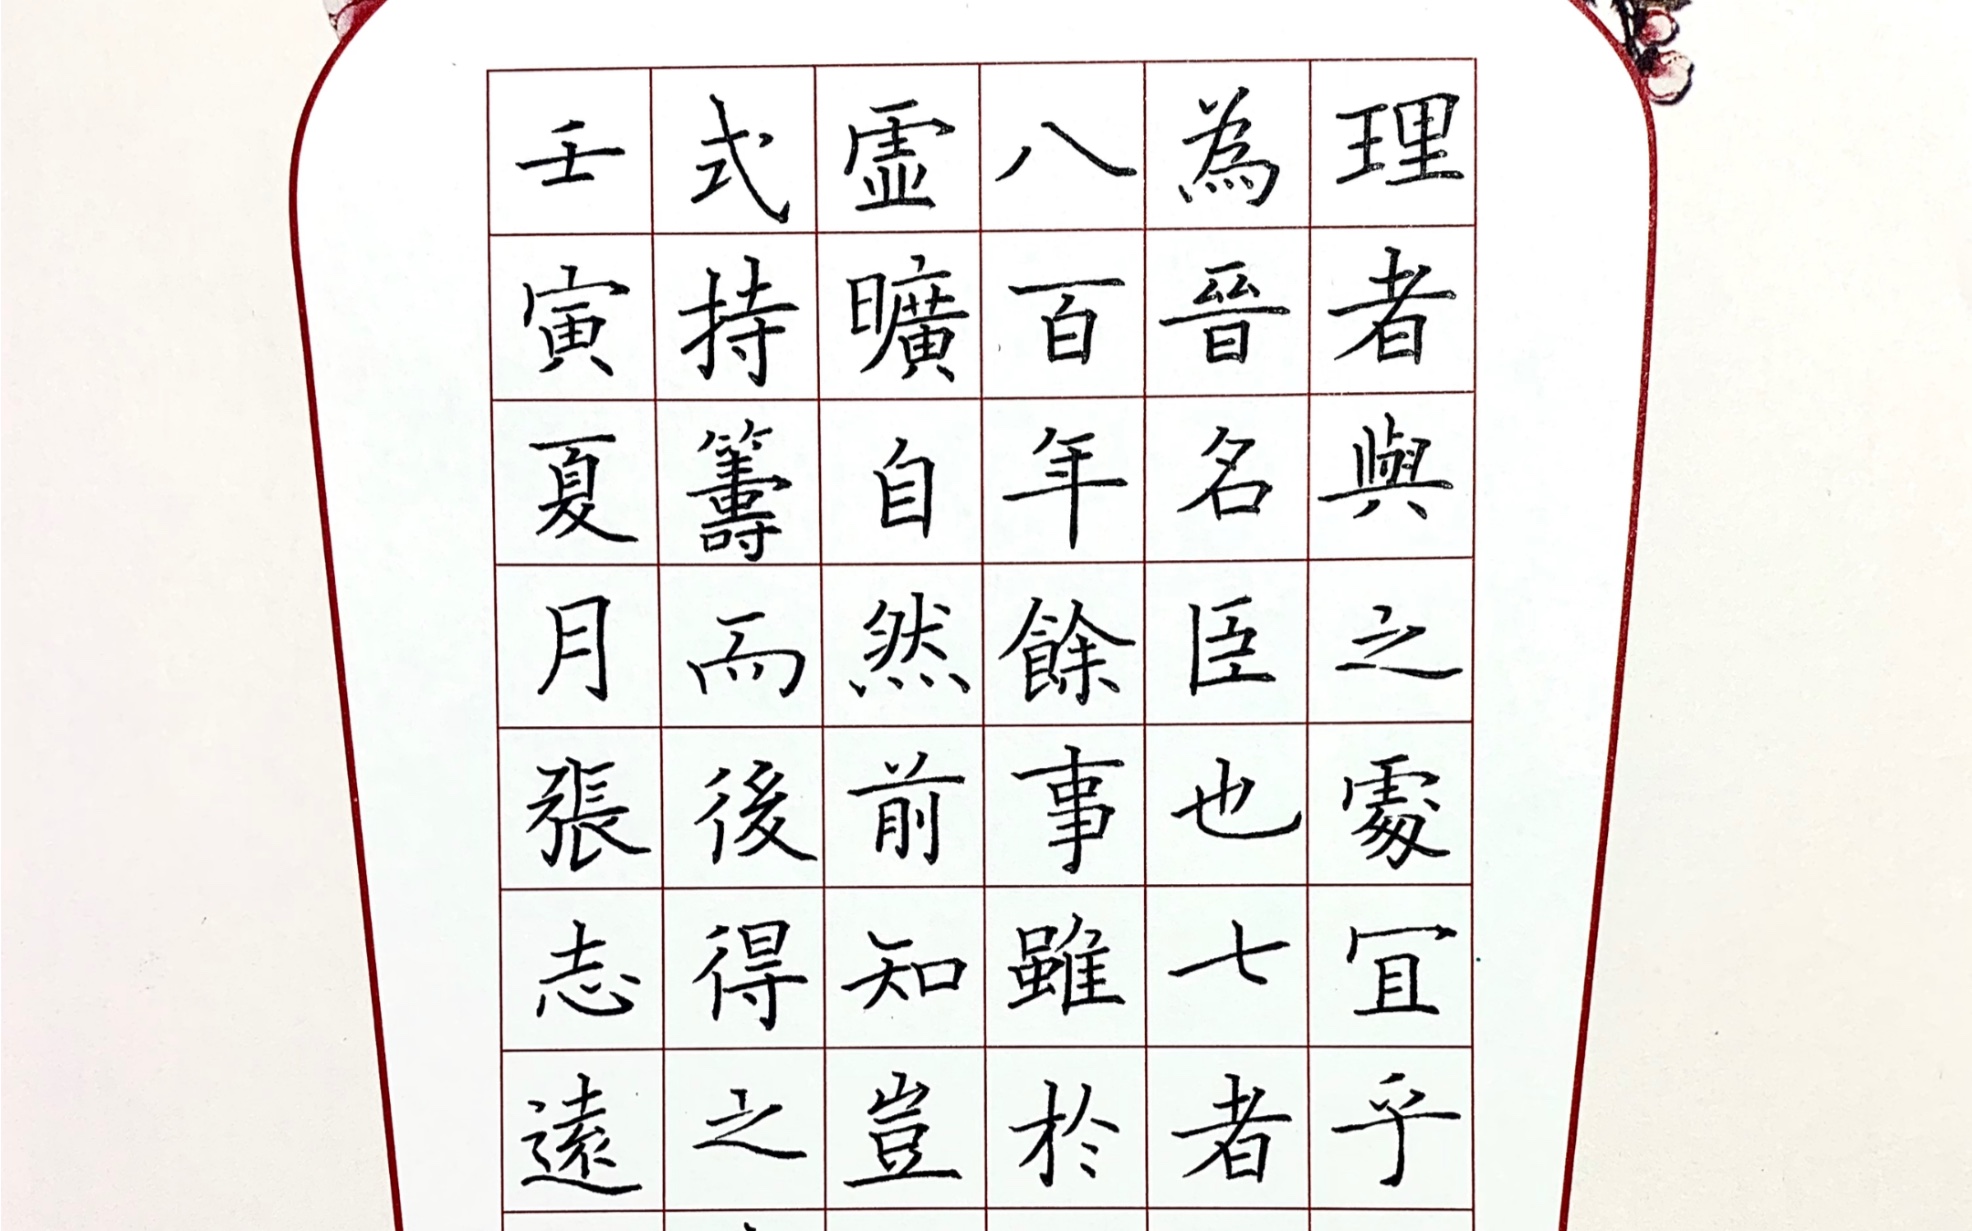 理者與之處宜乎
為晉名臣也七者
八百年餘事雖於
虛曠自然前知豈
式持籌而後得之
壬寅夏月張志遠